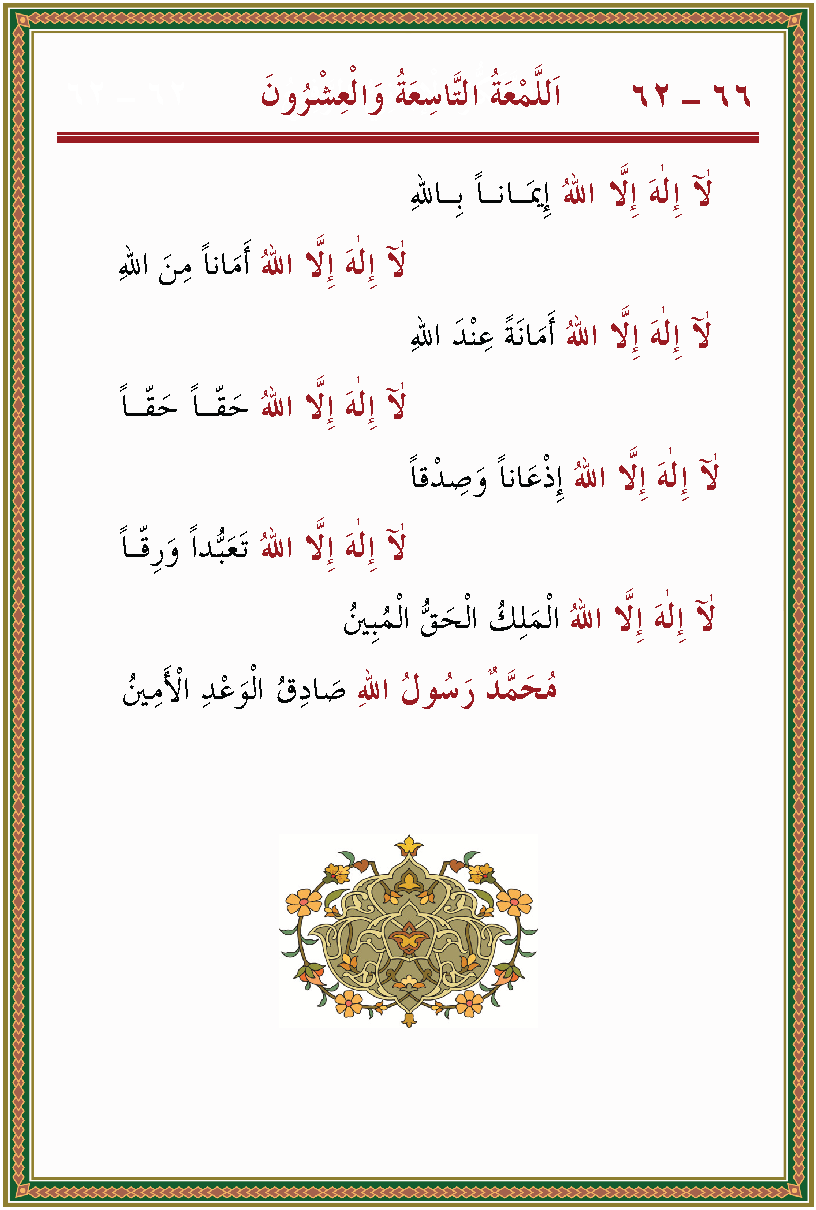 ٦٦ – ٦٢ اَللَّمْعَةُ التَّاسِعَةُ وَالْعِشْرُونَ
لَٓا إِلٰهَ إِلَّا اللهُ إِيمَـانـاً بِـاللهِ
لَٓا إِلٰهَ إِلَّا اللهُ أَمَاناً مِنَ اللهِ
لَٓا إِلٰهَ إِلَّا اللهُ أَمَانَةً عِنْدَ اللهِ
لَٓا إِلٰهَ إِلَّا اللهُ حَقّـاً حَقّـاً
لَٓا إِلٰهَ إِلَّا اللهُ إِذْعَاناً وَصِدْقاً
لَٓا إِلٰهَ إِلَّا اللهُ تَعَبُّداً وَرِقّـاً
لَٓا إِلٰهَ إِلَّا اللهُ الْمَلِكُ الْحَقُّ الْمُبِينُ
مُحَمَّدٌ رَسُولُ اللهِ صَادِقُ الْوَعْدِ الْأَمِينُ